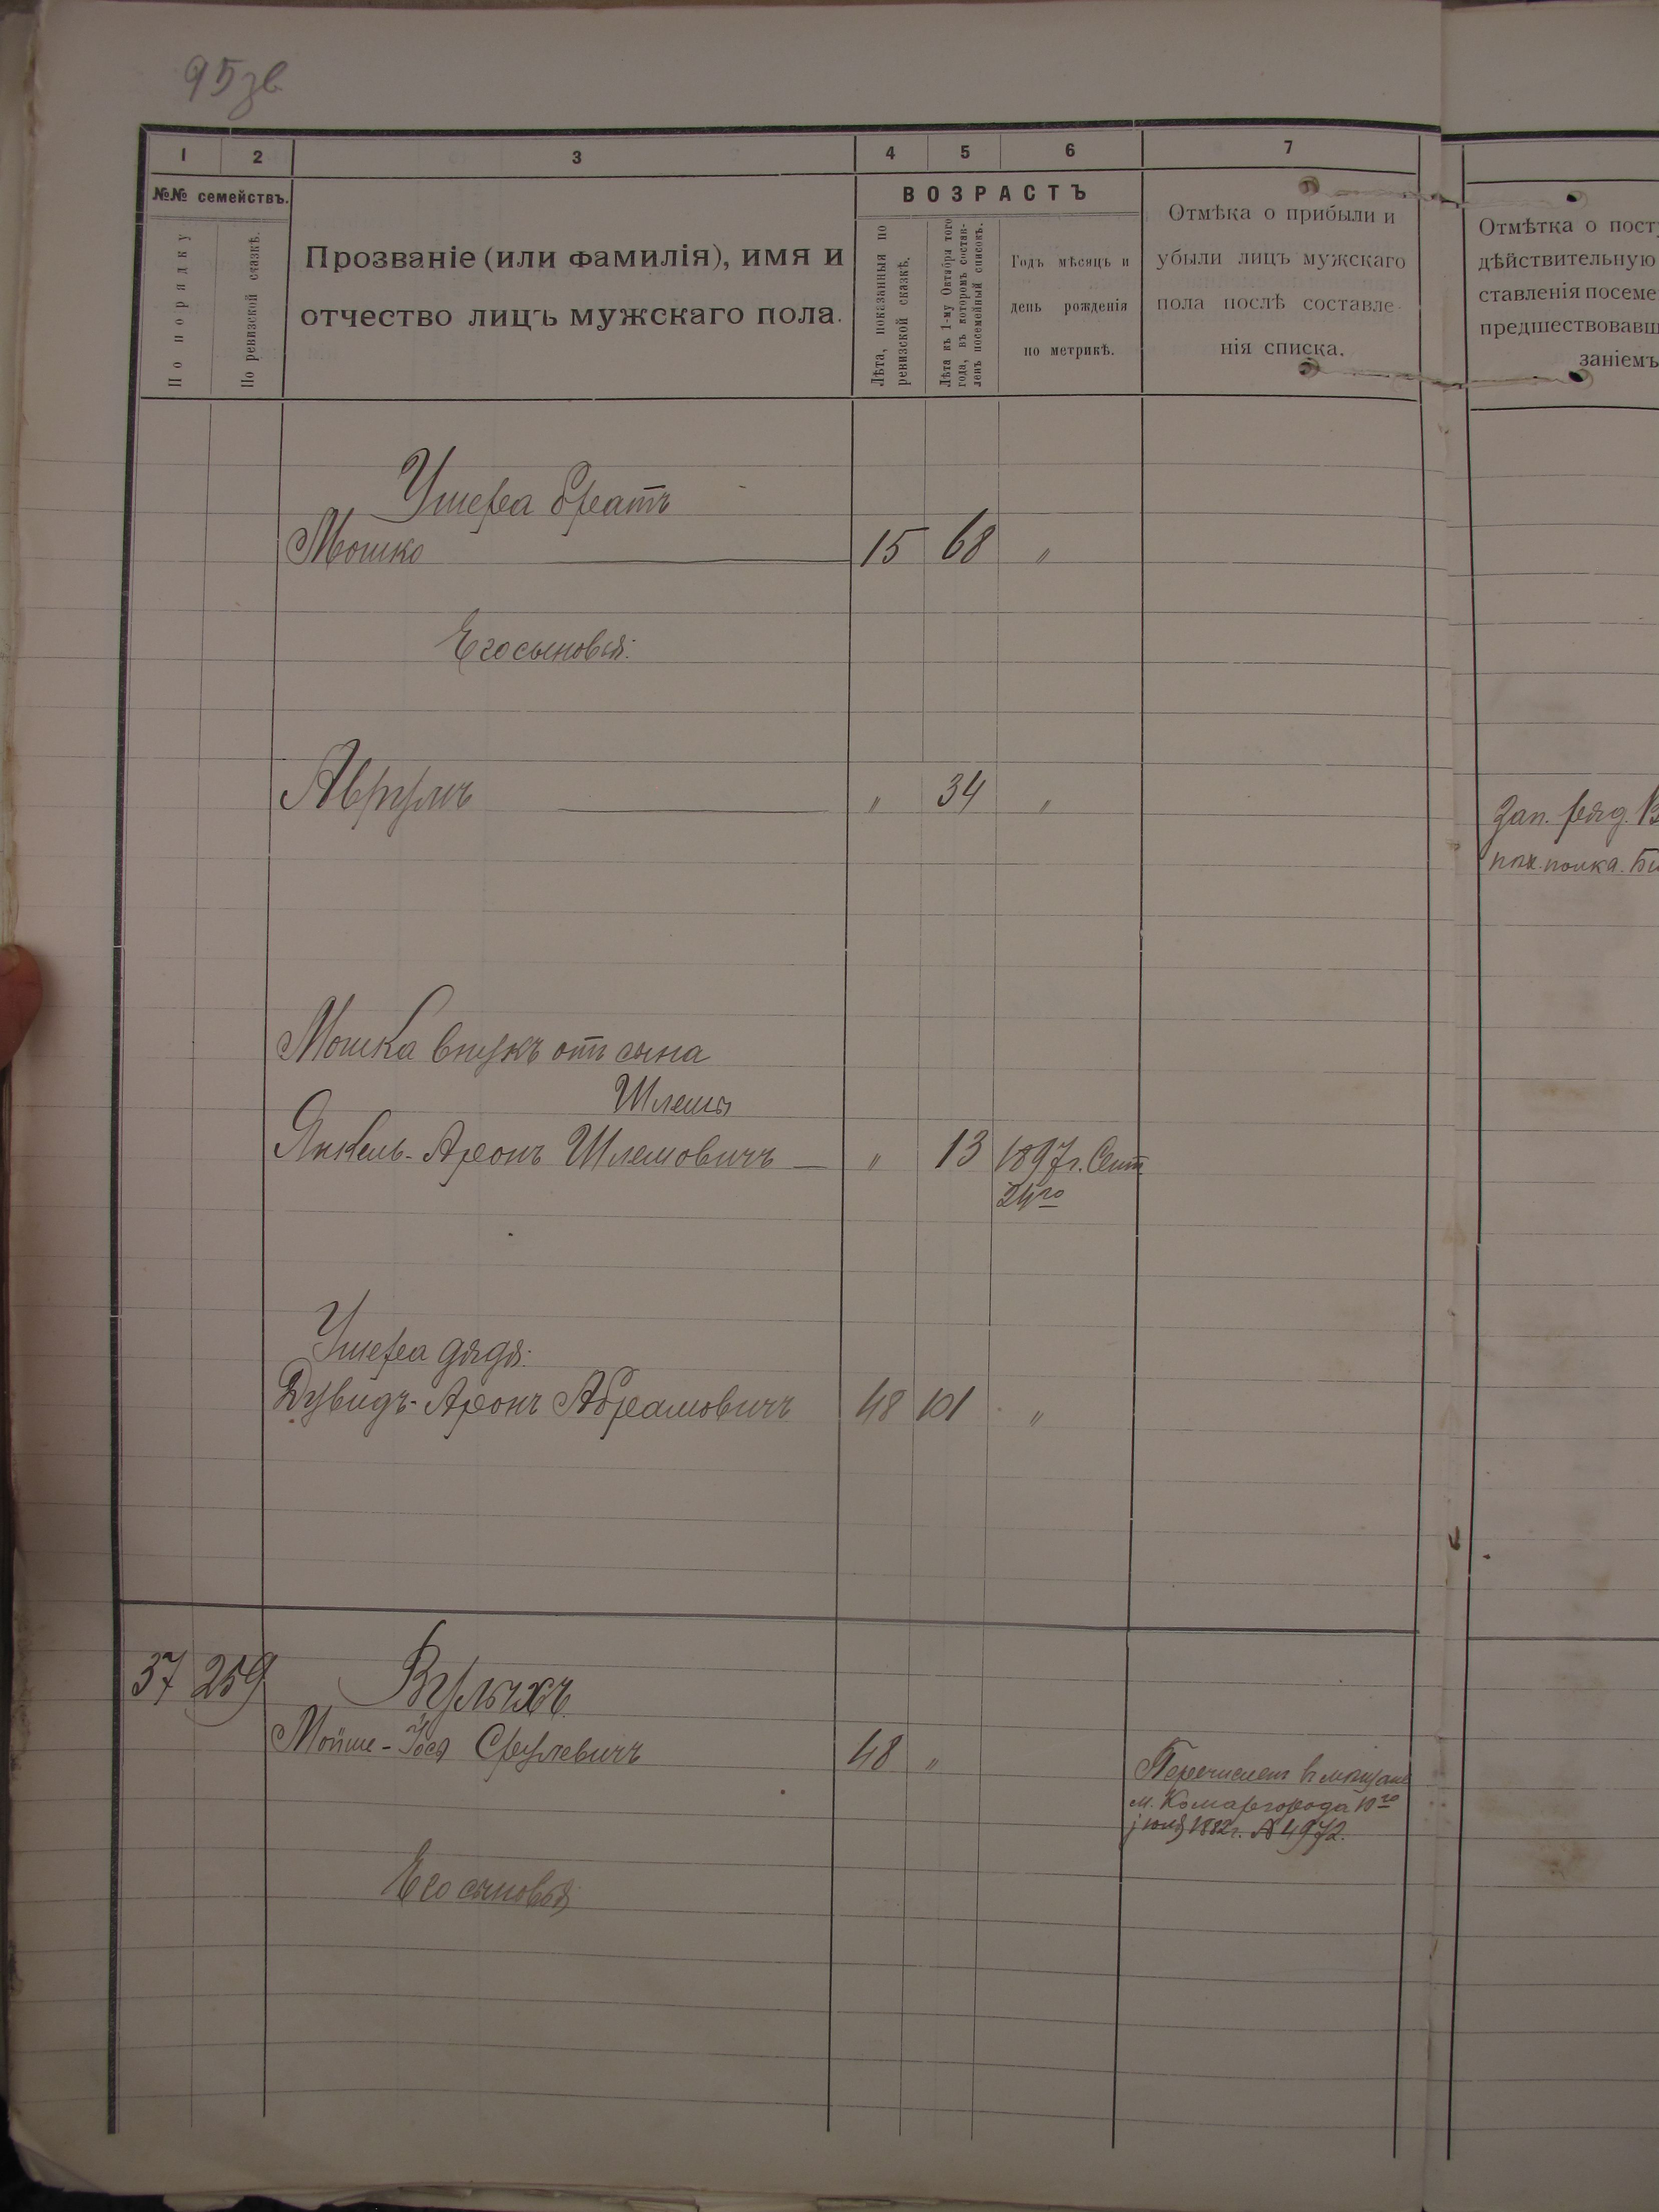 95зв
1 2 3 4 5 6 7
№№ семействъ.
По порядку
По ревизской сказкѣ.
Прозваніе (или фамилія), имя и
отчество лицъ мужскаго пола.
ВОЗРАСТЪ
Лѣта, показанныя по
ревизской сказкѣ.
Лѣта къ 1-му Октября того
года, въ которомъ состав-
ленъ посемейный списокъ.
Годъ мѣсяцъ и
день рожденія
по метрикѣ.
Отмѣка о прибыли и
убыли лицъ мужскаго
пола послѣ составле-
нія списка.
Отмѣтка о пост
дѣйствительную
ставленія посеме
предшествовавш
заніемъ
Ушера братъ
Мошко 15 68 "
Его сыновья:
Аврумъ " 34 "
Зап. ряд. В
пѣх. полка. Би
Мошка внукъ отъ сына
Шлемы
Янкель-Аронъ Шлемовичъ — " 13 1897г. Сент
24го
Ушера дядя:
Дувидъ-Аронъ Абрамовичъ 48 101 "
37 259 Вулыхъ
Мойше-Іося Срулевичъ 48 "
Перечисленъ въ мѣщане
м. Комаргорода 10го
іюля 1882г. № 4972.
Его сыновья